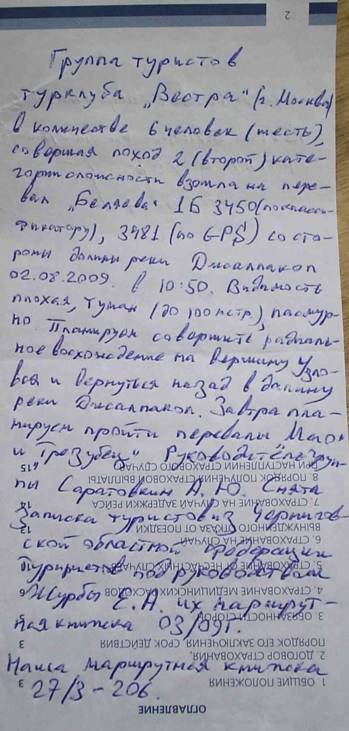 2
Группа туристов
турклуба "Вестра" (г. Москва)
в количестве 6 человек (шесть),
совершая поход 2 (второй) кате-
гории сложности взошла на пере-
вал "Беляева" 1Б 3450 (по класси-
фикатору), 3481 (по GPS) со сто-
роны долины реки Джалпакол
02.08.2009. в 10:50. Видимость
плохая, туман (до 100 метр), пасмур-
но. Планируем совершить радиаль-
ное восхождение на вершину Узло-
вая и вернуться назад в долину
реки Джалпакол. Завтра пла-
нируем пройти перевалы "Мао"
и "Трезубец". Руководитель груп-
пы Саратовкин А. Ю. Снята
записка туристов из Чернигов-
ской областной федерации
туризма под руководством
Журбы Е.А. их маршрут-
ная книжка 03/09г.
Наша маршрутная книжка
27/3-206.
ОГЛАВЛЕНИЕ
1. ОБЩИЕ ПОЛОЖЕНИЯ 3
2. ДОГОВОР СТРАХОВАНИЯ,
ПОРЯДОК ЕГО ЗАКЛЮЧЕНИЯ СРОК ДЕЙСТВИЯ 3
3. ОБЯЗАННОСТИ СТОРОН
4. СТРАХОВАНИЕ МЕДИЦИНСКИХ РАСХОДОВ 6
5. СТРАХОВАНИЕ ОТ НЕСЧАСТНЫХ СЛУЧАЕВ
6. СТРАХОВАНИЕ НА СЛУЧАЙ
ВЫНУЖДЕННОГО ОТКАЗА ОТ ПОЕЗДКИ 13
7. СТРАХОВАНИЕ НА СЛУЧАЙ ЗАДЕРЖКИ РЕЙСА
8. ПОРЯДОК ПОЛУЧЕНИЯ СТРАХОВОЙ ВЫПЛАТЫ
ПРИ НАСТУПЛЕНИИ СТРАХОВОГО СЛУЧАЯ 15